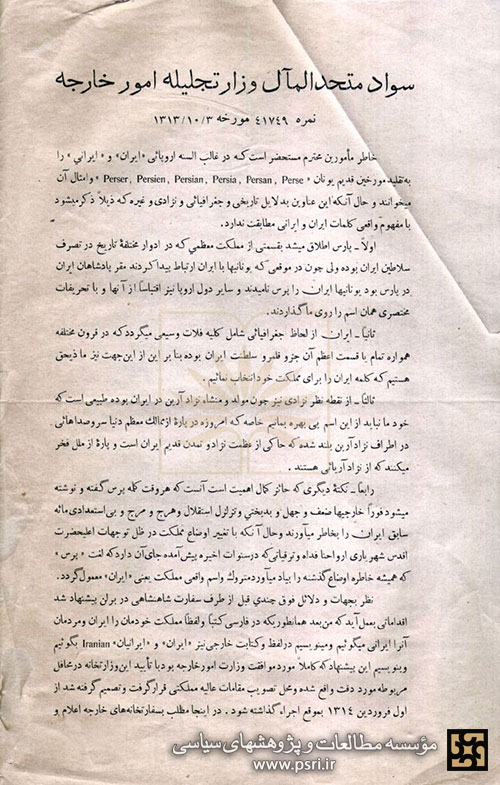 سواد متحدالمآل وزارتجلیله امور خارجه
نمره ۴۱۷۴۹ مورخه ۱۳۱۳/۱۰/۳
خاطر مأمورین محترم مستحضر است که در غالب السنه اروپائی «ایران» و «ایرانی» را
به تقلید مورخین قدیم یونان « Perser, Persien, Persian, Persia, Persan, Perse » و امثال آن
میخوانند و حال آنکه این عناوین بدلایل تاریخی و جغرافیائی و نژادی و غیره که ذیلاً ذکر میشود
با مفهوم واقعی کلمات ایران و ایرانی مطابقت ندارد.
اولاً ـ پارس اطلاق میشد بقسمتی از مملکت معظمی که در ادوار مختلفهٔ تاریخ در تصرف
سلاطین ایران بوده ولی چون در موقعی که یونانیها با ایران ارتباط پیدا کردند مقر پادشاهان ایران
در پارس بود یونانیها ایران را پرس نامیدند و سایر دول اروپا نیز اقتباساً از آنها و با تحریفات
مختصری همان اسم را روی ما گذاردند.
ثانیاً ـ ایران از لحاظ جغرافیائی شامل کلیه فلات وسیعی میگردد که در قرون مختلفه
همواره تمام یا قسمت اعظم آن جزو قلمرو سلطنت ایران بوده بنا بر این از این جهت نیز ما ذیحق
هستیم که کلمه ایران را برای مملکت خود انتخاب نمائیم.
ثالثاً ـ از نقطه نظر نژادی نیز چون مولد و منشاء نژاد آرین در ایران بوده طبیعی است که
خود ما نباید از این اسم بی بهره بمانیم خاصه که امروزه در پارهٔ از ممالک معظم دنیا سر و صداهائی
در اطراف نژاد آرین بلند شده که حاکی از عظمت نژاد و تمدن قدیم ایران است و پارهٔ از ملل فخر
میکنند که از نژاد آریائی هستند.
رابعاً ـ نکتهٔ دیگری که حائز کمال اهمیت است آنست که هر وقت کلمه پرس گفته و نوشته
میشود فوراً خارجیها ضعف و جهل و بدبختی و تزلزل استقلال و هرج و مرج و بی استعدادی مائه
سابق ایران را بخاطر میآورند و حال آنکه با تغییر اوضاع مملکت در ظل توجهات اعلیحضرت
اقدس شهریاری ارواحنا فداه و ترقیاتی که در سنوات اخیره پیش آمده جای آن دارد که لغت «پرس»
که همیشه خاطره اوضاع گذشته را بیاد میآورد متروک و اسم واقعی مملکت یعنی «ایران» معمول گردد.
نظر بجهات و دلائل فوق چندی قبل از طرف سفارت شاهنشاهی در برلن پیشنهاد شد
اقداماتی بعمل آید که من بعد همانطوریکه در فارسی کتباً و لفظاً مملکت خودمان را ایران و مردمان
آنرا ایرانی میگوئیم و مینویسیم در لفظ و کتابت خارجی نیز «ایران» و «ایرانیان» Iranian بگوئیم
و بنویسیم این پیشنهاد که کاملاً مورد موافقت وزارت امور خارجه بود با تأیید این وزارتخانه در محافل
مربوطه مورد دقت واقع شده و محل تصویب مقامات عالیه مملکتی قرار گرفت و تصمیم گرفته شد از
اول فروردین ۱۳۱۴ بموقع اجراء گذاشته شود. در اینجا مطلب بسفارتخانه‌های خارجه اعلام و
مؤسسه مطالعات و پژوهشهای سیاسی
www.psri.ir